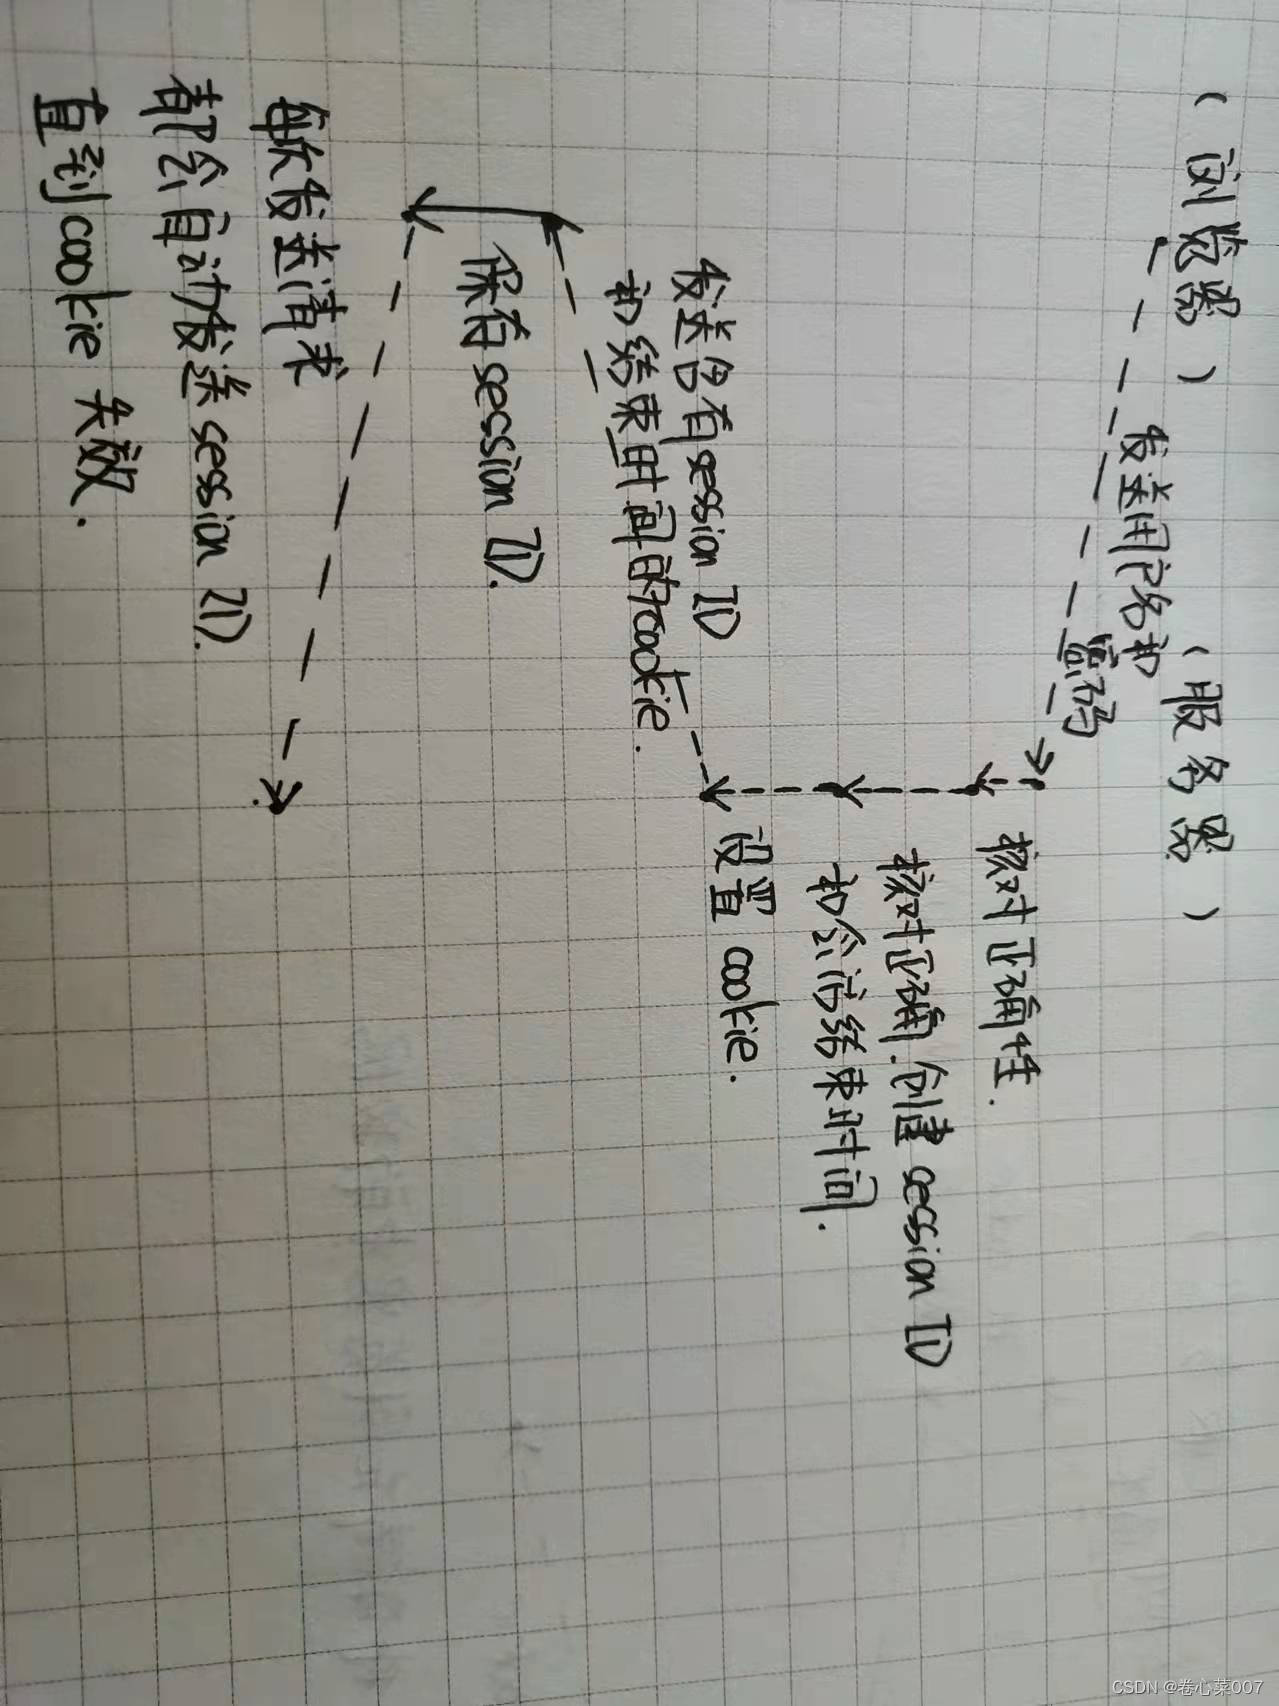 (浏览器)
(服务器)
发送用户名和
密码
核对正确性.
核对正确.创建session ID
和会话结束时间.
设置cookie.
发送含有session ID
和结束时间的cookie.
保存session ID.
每次发送请求
都会自动发送session ID.
直到cookie失效.
CSDN @卷心菜007